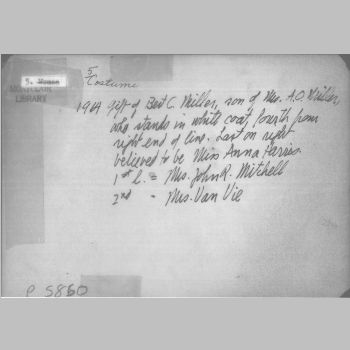 5
Costume
5. Women
MONTCLAIR
LIBRARY
1964 gift of Bert C. Miller, son of Mrs. A.O. Miller,
who stands in white coat, fourth from
right end of line. Last on right
believed to be Miss Anna Harris.
1st l. = Mrs. John R. Mitchell
2nd - Mrs. Van Vie
P 5860